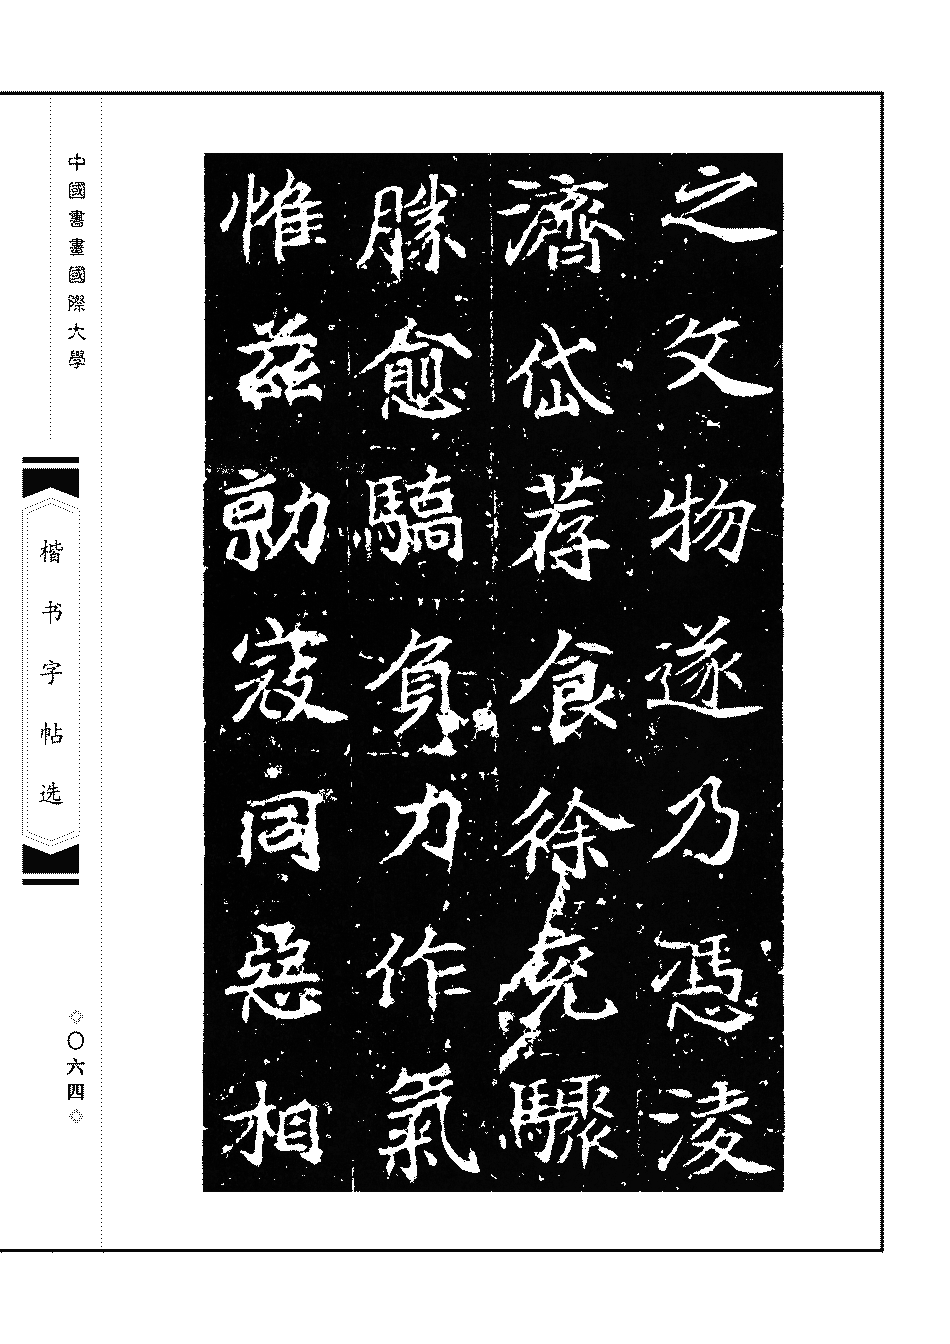 之文物遂乃憑淩
濟岱荐食徐兗驟
勝愈驕負力作氣
惟茲勍寇同惡相
中國書畫國際大學
楷书字帖选
◇〇六四◇